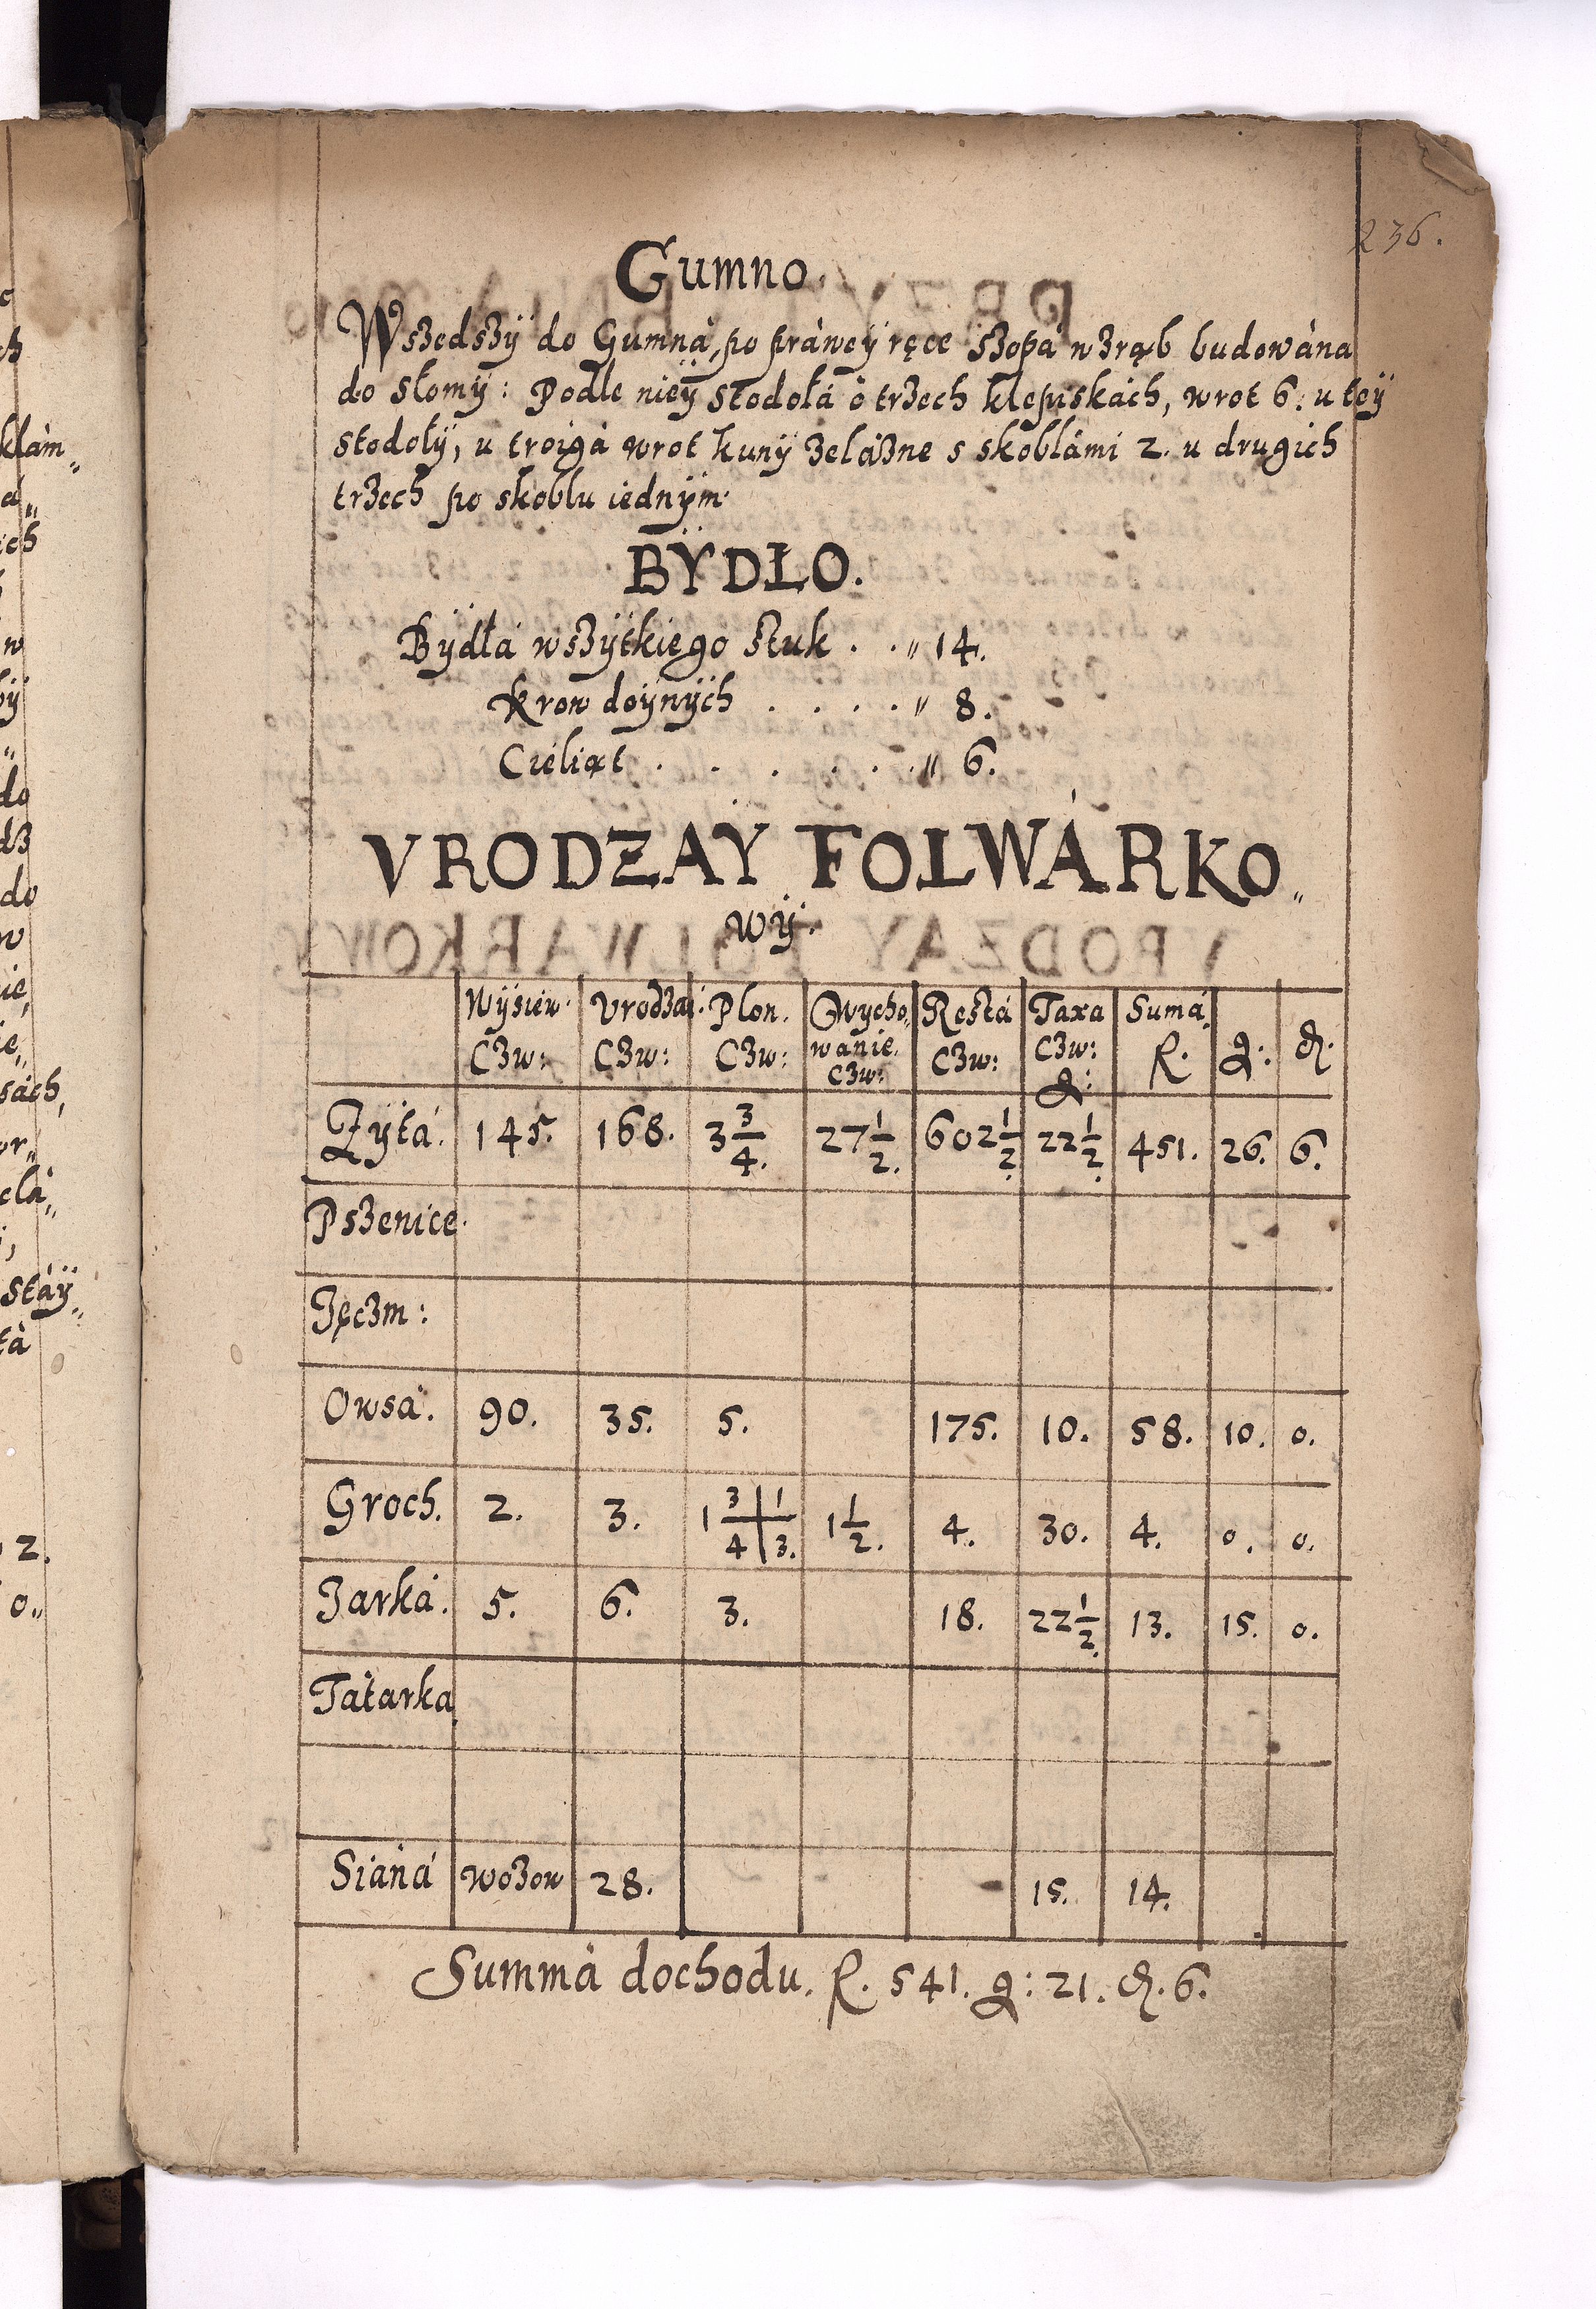 236.
Gumno.
Wszedszÿ do Gumná, po práweÿ ręce szopá w zrąb budowána
do słomÿ: Podle nieÿ stodołá ó trzech klepiskách, wrot 6. u teÿ
stodołÿ, u troigá wrot kunÿ zelázne s skoblámi 2. u drugich
trzech po skoblu iednÿm.
BŸDŁO.
Bÿdłá wszÿtkiego sztuk . . „ 14.
Krow doÿnÿch . . . . „ 8.
Cieliąt . . . . . „ 6.
VRODZAY FOLWÁRKO„
wÿ.
Wÿsiew. Vrodzai. Plon. Wycho„ Restá Taxa Sumá.
Czw: Czw: Czw: wanie. Czw: Czw: R. g: d.
Czw: g:
Zÿtá. 145. 168. 3 3/4. 27 1/2. 602 1/2. 22 1/2. 451. 26. 6.
Pszenice.
Jęczm:
Owsá. 90. 35. 5. 175. 10. 58. 10. 0.
Groch. 2. 3. 1 3/4 1/3. 1 1/2. 4. 30. 4. 0. 0.
Jarká. 5. 6. 3. 18. 22 1/2. 13. 15. 0.
Tátarka.
Sianá wozow 28. 15. 14.
Summá dochodu. R. 541. g: 21. d. 6.